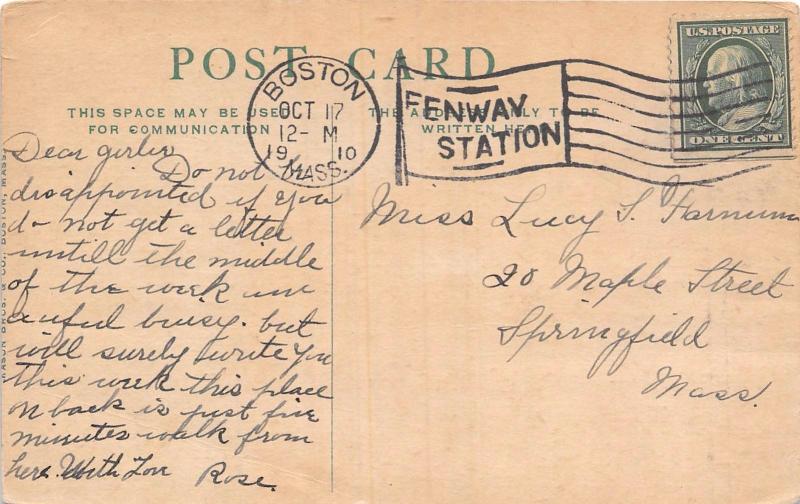 POST CARD
THIS SPACE MAY BE USED
FOR COMMUNICATION
THE ADDRESS ONLY TO BE
WRITTEN HERE
BOSTON
OCT 17
12- M
19 10
MASS.
FENWAY
STATION
U.S. POSTAGE
ONE CENT
Dear girlie
Do not be
disappointed if you
do not get a letter
untill the middle
of the week am
awful busy. but
will surely write you
this week this place
on back is just five
minutes walk from
here. With Love
Rose.
Miss Lucy S. Farnum
20 Maple Street
Springfield
Mass.
MASON BROS. & CO., BOSTON, MASS.